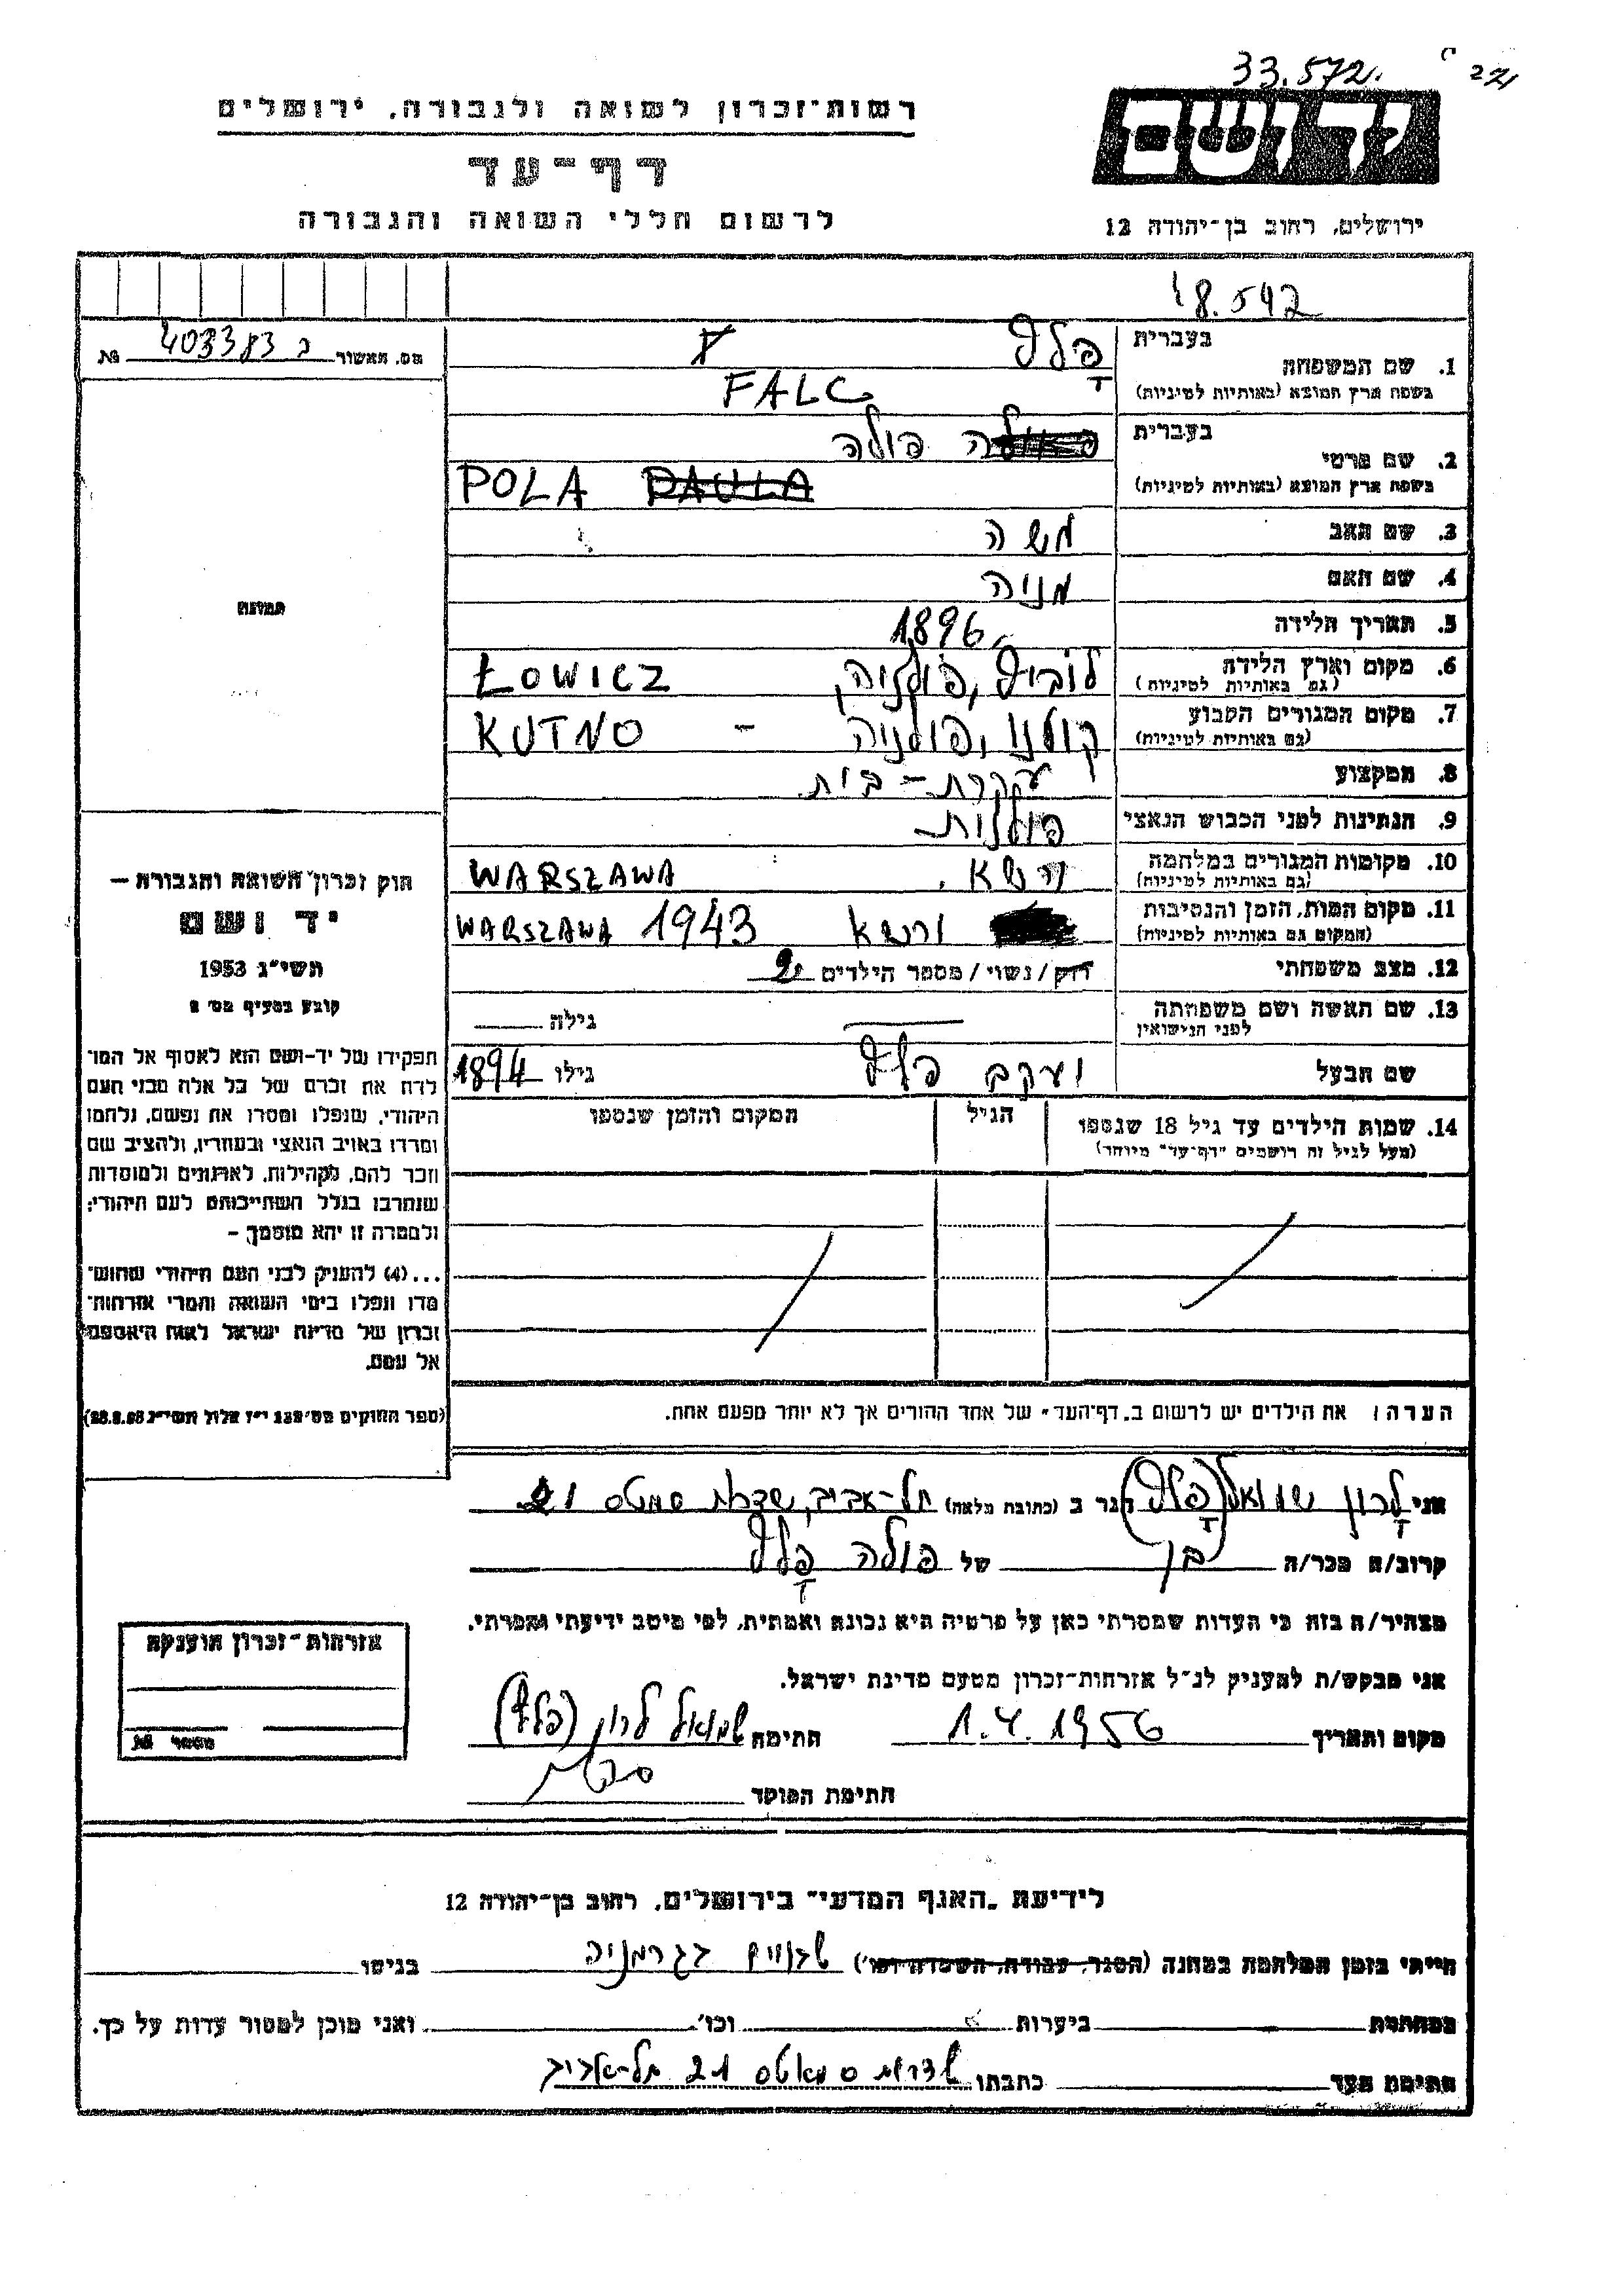 33.572.
רשות-זכרון לשואה ולגבורה, ירושלים
יד ושם
דף-עד
לרשום חללי השואה והגבורה
ירושלים, רחוב בן-יהודה 12
18.542
מס. האשור ב 403383 №
1. שם המשפחה
בעברית
פלץ
בשפת ארץ המוצא (באותיות לטיניות)
FALC
2. שם פרטי
בעברית
פולה
בשפת ארץ המוצא (באותיות לטיניות)
POLA PAULA
3. שם האב משה
4. שם האם מניה
5. תאריך הלידה 1896
6. מקום וארץ הלידה
(גם באותיות לטיניות)
לוביץ, פולניה, ŁOWICZ
7. מקום המגורים הקבוע
(גם באותיות לטיניות)
קוטנו, פולניה - KUTNO
8. המקצוע עקרת-בית
9. הנתינות לפני הכבוש הנאצי פולנית
10. מקומות המגורים במלחמה
(גם באותיות לטיניות)
ורשא. WARSZAWA
11. מקום המות, הזמן והנסיבות
(המקום גם באותיות לטיניות)
ורשא 1943 WARSZAWA
12. מצב משפחתי רוק/נשוי/מספר הילדים 2
13. שם האשה ושם משפחתה
לפני הנישואין
גילה
שם הבעל יעקב פלץ גילו 1894
14. שמות הילדים עד גיל 18 שנספו
(מעל לגיל זה רושמים "דף-עד" מיוחד)
הגיל
המקום והזמן שנספו
הערה: את הילדים יש לרשום ב"דף-העד" של אחד ההורים אך לא יותר מפעם אחת.
תמונה
חוק זכרון השואה והגבורה –
יד ושם
תשי"ג 1953
קובע בסעיף מס' 2
תפקידו של יד-ושם הוא לאסוף אל המו-
לדת את זכרם של כל אלה מבני העם
היהודי, שנפלו ומסרו את נפשם, נלחמו
ומרדו באויב הנאצי ובעוזריו, ולהציב שם
וזכר להם, לקהילות, לארגונים ולמוסדות
שנחרבו בגלל השתייכותם לעם היהודי;
ולמטרה זו יהא מוסמך –
...(4) להעניק לבני העם היהודי שהוש-
מדו ונפלו בימי השואה והמרי אזרחות-
זכרון של מדינת ישראל לאות היאספם
אל עמם.
(ספר החוקים מס' 132 י"ז אלול תשי"ג 28.8.53)
אני לרון שמואל (פלץ) הגר ב (כתובת מלאה) תל-אביב, שדרות סמטס 21
קרוב/ה מכר/ה בן של פולה פלץ
מצהיר/ה בזה כי העדות שמסרתי כאן על פרטיה היא נכונה ואמתית, לפי מיטב ידיעתי והכרתי.
אני מבקש/ת להעניק לנ"ל אזרחות-זכרון מטעם מדינת ישראל.
מקום ותאריך 1.4.1956 חתימה שמואל לרון (פלץ)
חתימת הפוקד
אזרחות-זכרון הוענקה
מספר №
לידיעת "האגף המדעי" בירושלים, רחוב בן-יהודה 12
הייתי בזמן המלחמה במחנה (הסגר, עבודה, השמדה וכו') שבויים בגרמניה בגיטו
במחתרת ביערות וכו' ואני מוכן למסור עדות על כך.
חתימת העד כתבתו שדרות סמאטס 21 תל-אביב